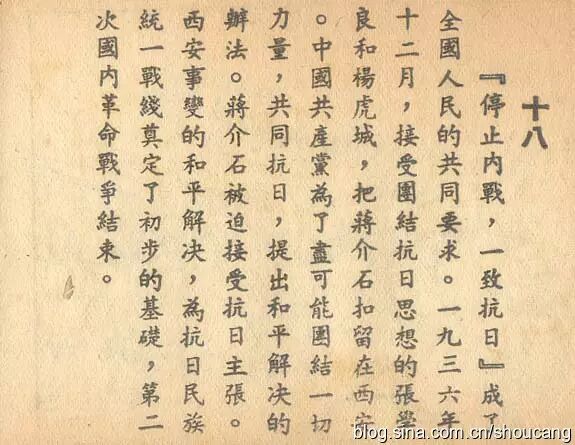 十八
『停止內戰，一致抗日』成了
全國人民的共同要求。一九三六年
十二月，接受團結抗日思想的張學
良和楊虎城，把蔣介石扣留在西安
。中國共產黨為了盡可能團結一切
力量，共同抗日，提出和平解決的
辦法。蔣介石被迫接受抗日主張。
西安事變的和平解決，為抗日民族
統一戰綫奠定了初步的基礎，第二
次國內革命戰爭結束。
blog.sina.com.cn/shoucang